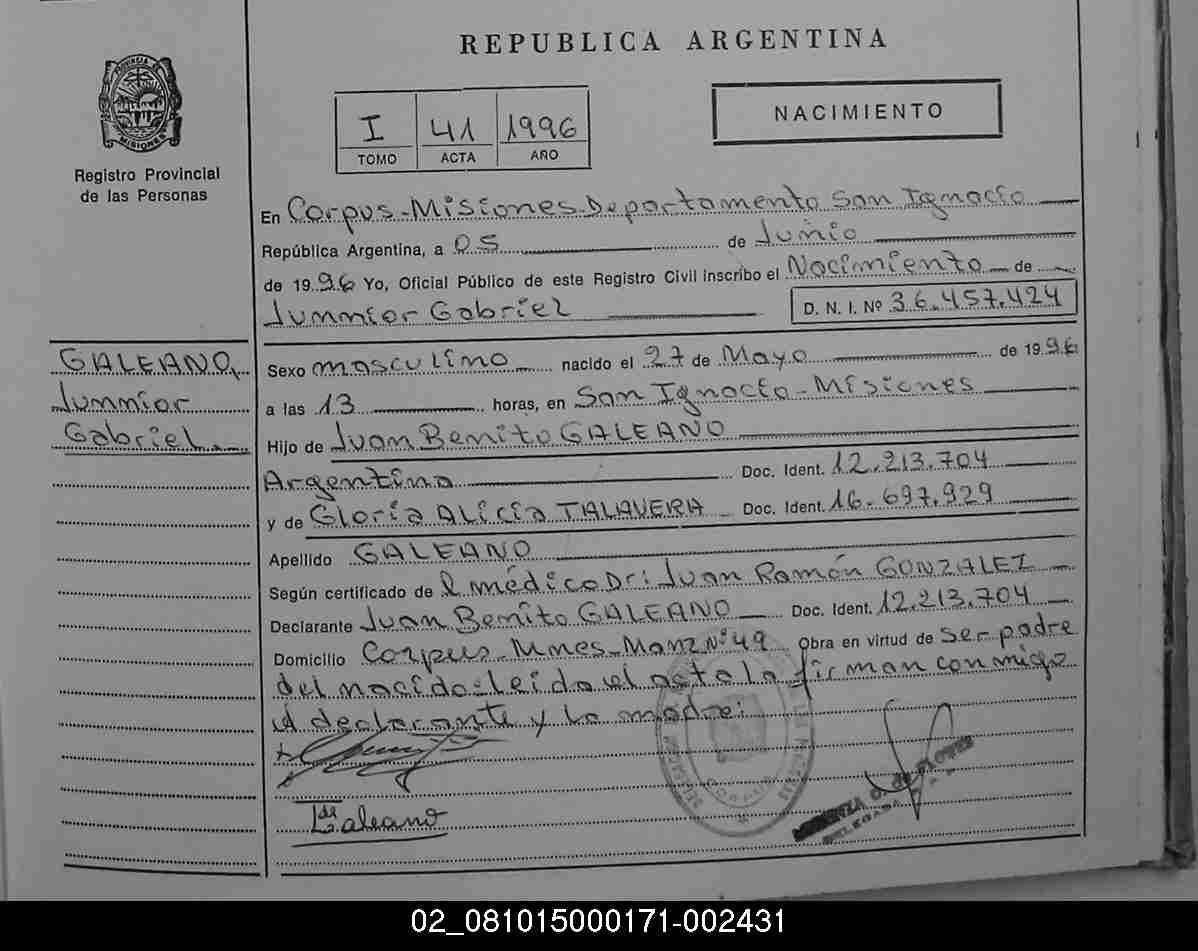 REPUBLICA ARGENTINA
PROVINCIA DE
MISIONES
Registro Provincial
de las Personas
I 41 1996
TOMO ACTA AÑO
NACIMIENTO
En Corpus-Misiones-Departamento San Ignacio
República Argentina, a 05 de Junio
de 1996 Yo, Oficial Público de este Registro Civil inscribo el Nacimiento de
Junnior Gabriel D. N. I. Nº 36.457.424
GALEANO,
Junnior
Gabriel
Sexo masculino nacido el 27 de Mayo de 1996
a las 13 horas, en San Ignacio-Misiones
Hijo de Juan Benito GALEANO
Argentino Doc. Ident. 12.213.704
y de Gloria Alicia TALAVERA Doc. Ident. 16.697.929
Apellido GALEANO
Según certificado de l médico Dr: Juan Ramón GONZALEZ
Declarante Juan Benito GALEANO Doc. Ident. 12.213.704
Domicilio Corpus-Mnes-Manz Nº 49 Obra en virtud de ser padre
del nacido-leida el acta la firman conmigo
el declarante y la madre:
de Galeano
DE FLORES
DELEGADA
CORPUS
02_081015000171-002431